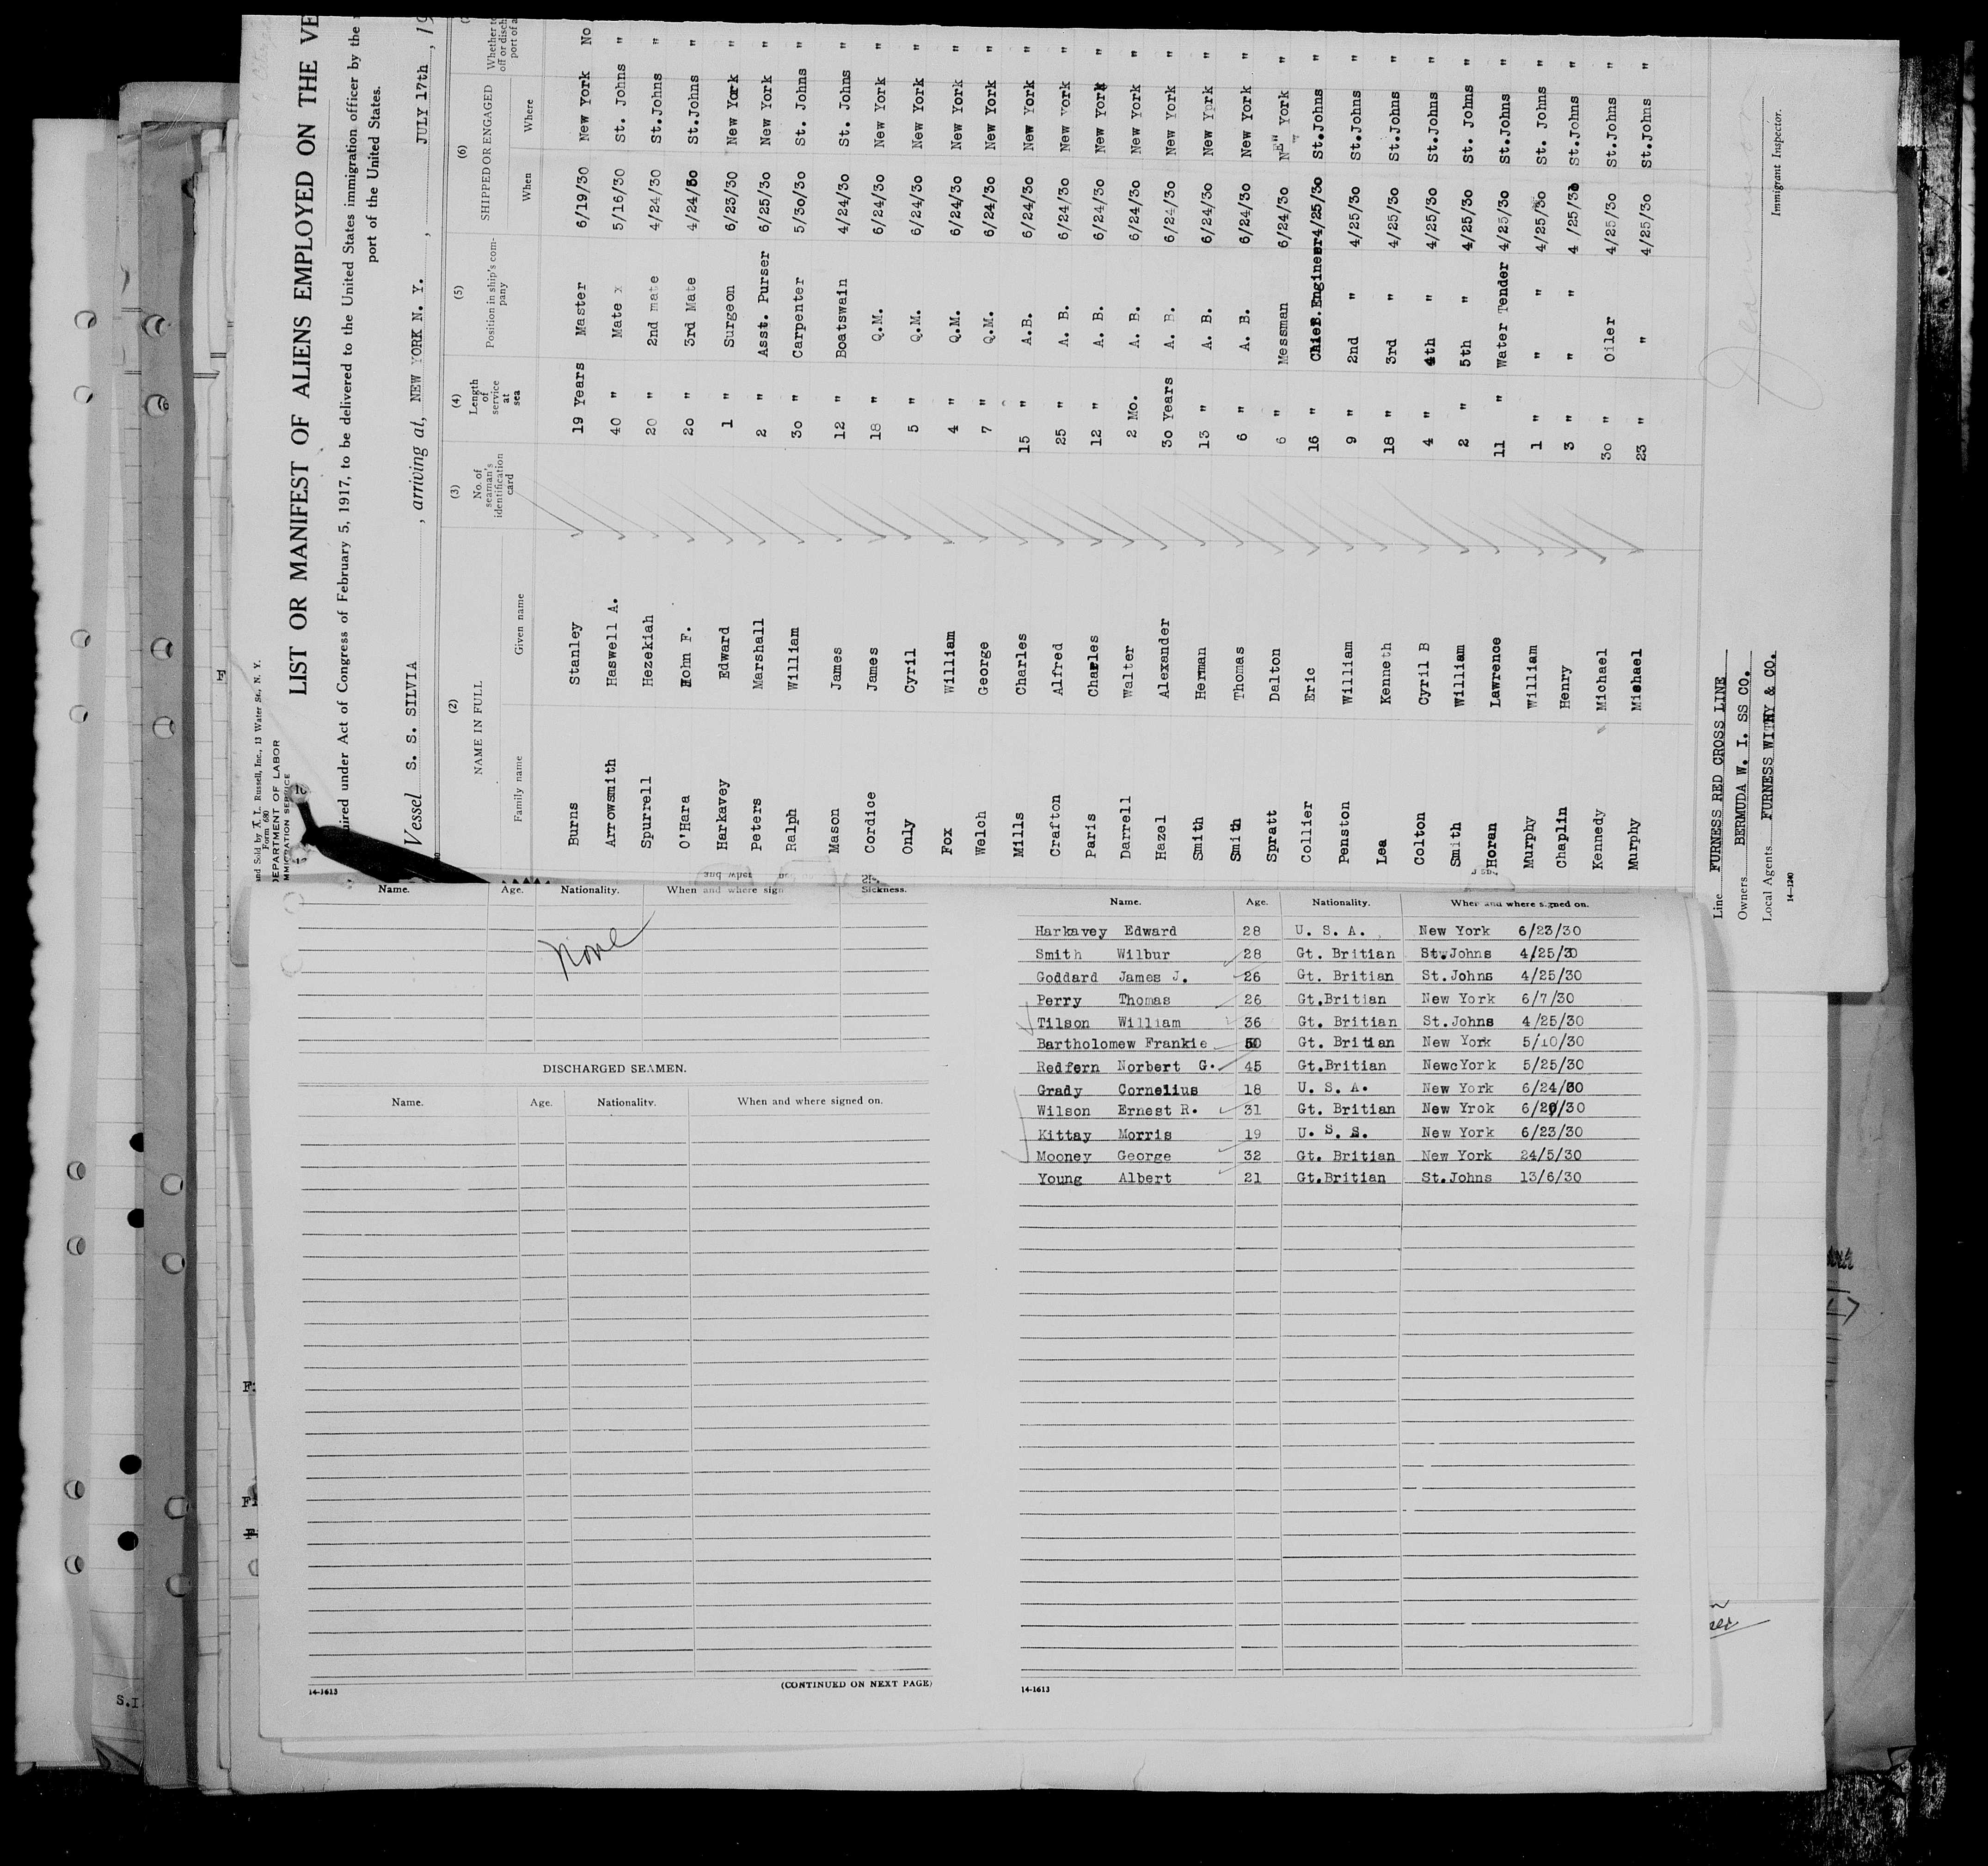 and Sold by A. L. Russell, Inc., 13 Water St., N. Y.
Form 680
DEPARTMENT OF LABOR
IMMIGRATION SERVICE
LIST OR MANIFEST OF ALIENS EMPLOYED ON THE VE
uired under Act of Congress of February 5, 1917, to be delivered to the United States immigration officer by the
port of the United States.
Vessel S. S. SILVIA , arriving at, NEW YORK N. Y. , JULY 17th , 19
(2) (3) (4) (5) (6)
NAME IN FULL No. of seaman's identification card Length of service at sea Position in ship's company SHIPPED OR ENGAGED Whether to off or disch port of a
Family name Given name When Where
Burns Stanley 19 Years Master 6/19/30 New York No
Arrowsmith Haswell A. 40 " Mate x 5/16/30 St. Johns "
Spurrell Hezekiah 20 " 2nd mate 4/24/30 St.Johns "
O'Hara John F. 20 " 3rd Mate 4/24/30 St.Johns "
Harkavey Edward 1 " Surgeon 6/23/30 New York "
Peters Marshall 2 " Asst. Purser 6/25/30 New York "
Ralph William 30 " Carpenter 5/30/30 St. Johns "
Mason James 12 " Boatswain 4/24/30 St. Johns "
Cordice James 18 " Q.M. 6/24/30 New York "
Only Cyril 5 " Q.M. 6/24/30 New York "
Fox William 4 " Q.M. 6/24/30 New York "
Welch George 7 " Q.M. 6/24/30 New York "
Mills Charles 15 " A.B. 6/24/30 New York "
Crafton Alfred 25 " A. B. 6/24/30 New York "
Paris Charles 12 " A. B. 6/24/30 New York "
Darrell Walter 2 Mo. A. B. 6/24/30 New York "
Hazel Alexander 30 Years A. B. 6/24/30 New York "
Smith Herman 13 " A. B. 6/24/30 New York "
Smith Thomas 6 " A. B. 6/24/30 New York "
Spratt Dalton 6 " Messman 6/24/30 NE" York "
Collier Eric 16 " Chief. Engineer 4/25/30 St.Johns "
Penston William 9 " 2nd " 4/25/30 St.Johns "
Lea Kenneth 18 " 3rd " 4/25/30 St.Johns "
Colton Cyril B 4 " 4th " 4/25/30 St.Johns "
Smith William 2 " 5th " 4/25/30 St. Johns "
Horan Lawrence 11 " Water Tender 4/25/30 St.Johns "
Murphy William 1 " " " 4/25/30 St. Johns "
Chaplin Henry 3 " " " 4 /25/30 St.Johns "
Kennedy Michael 30 " Oiler 4/25/30 St.Johns "
Murphy Michael 23 " " 4/25/30 St.Johns "
Line FURNESS RED CROSS LINE
Owners BERMUDA W. I. SS CO.
Local Agents FURNESS WITHY & CO.
14-1240
Immigrant Inspector.
Name. Age. Nationality. When and where sign Sickness.
None
DISCHARGED SEAMEN.
Name. Age. Nationality. When and where signed on.
14-1613
(CONTINUED ON NEXT PAGE)
Name. Age. Nationality. When and where signed on.
Harkavey Edward 28 U. S. A. New York 6/23/30
Smith Wilbur 28 Gt. Britian St.Johns 4/25/30
Goddard James J. 26 Gt. Britian St.Johns 4/25/30
Perry Thomas 26 Gt.Britian New York 6/7/30
Tilson William 36 Gt. Britian St.Johns 4/25/30
Bartholomew Frankie 50 Gt. Britian New York 5/10/30
Redfern Norbert G. 45 Gt.Britian NewcYork 5/25/30
Grady Cornelius 18 U. S. A. New York 6/24/30
Wilson Ernest R. 31 Gt. Britian New Yrok
Kittay Morris 19 U. S. S. New York 6/23/30
Mooney George 32 Gt. Britian New York 24/5/30
Young Albert 21 Gt.Britian St.Johns 13/6/30
14-1613
S.I